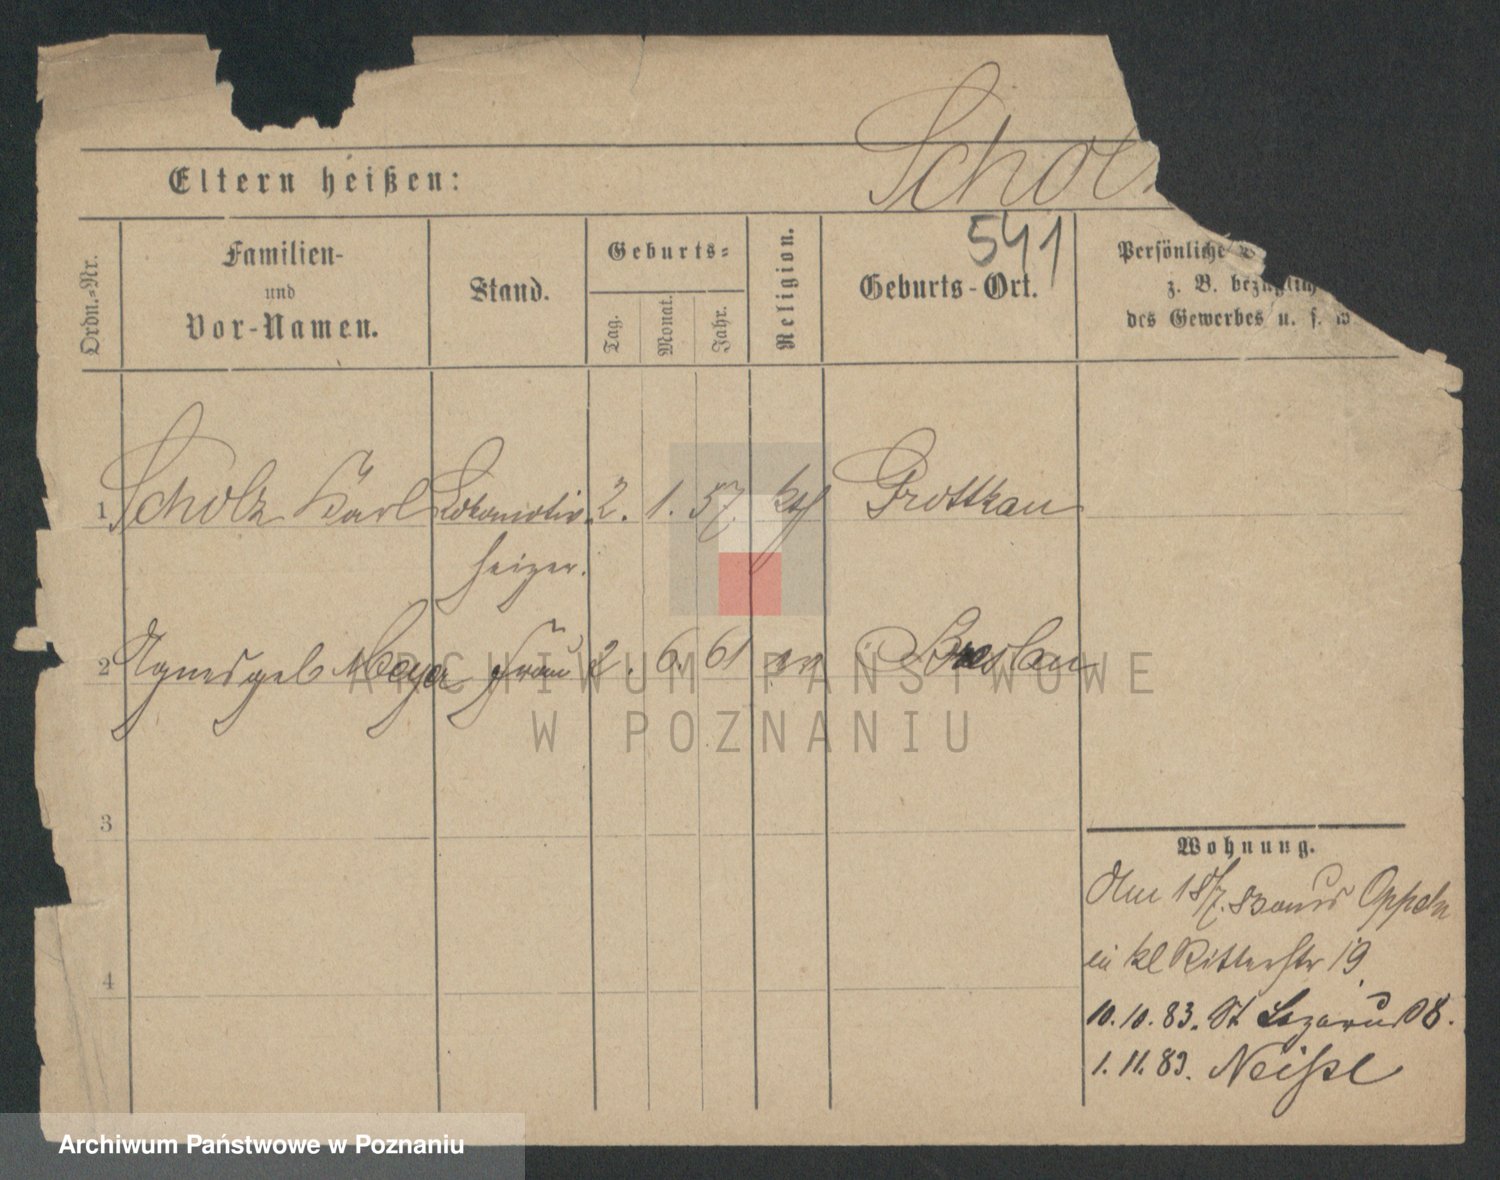 Schol
Eltern heißen:
541
Ordn.-Nr.
Familien-
und
Vor-Namen.
Stand.
Geburts-
Tag.
Monat.
Jahr.
Religion.
Geburts-Ort.
Persönliche
z. B. bezüglich
des Gewerbes u. s. w
1 Scholz Karl Lokomotiv- 2. 1. 57. kth Grottkau
heizer.
2 Agnes geb Meyer Frau 2. 6. 61 ev Breslau
3
4
Wohnung.
Am 18/7. 83 aus Oppeln
in kl Ritterstr 19
10. 10. 83. St Lazarus 08.
1. 11. 83. Neiße
ARCHIWUM PAŃSTWOWE
W POZNANIU
Archiwum Państwowe w Poznaniu